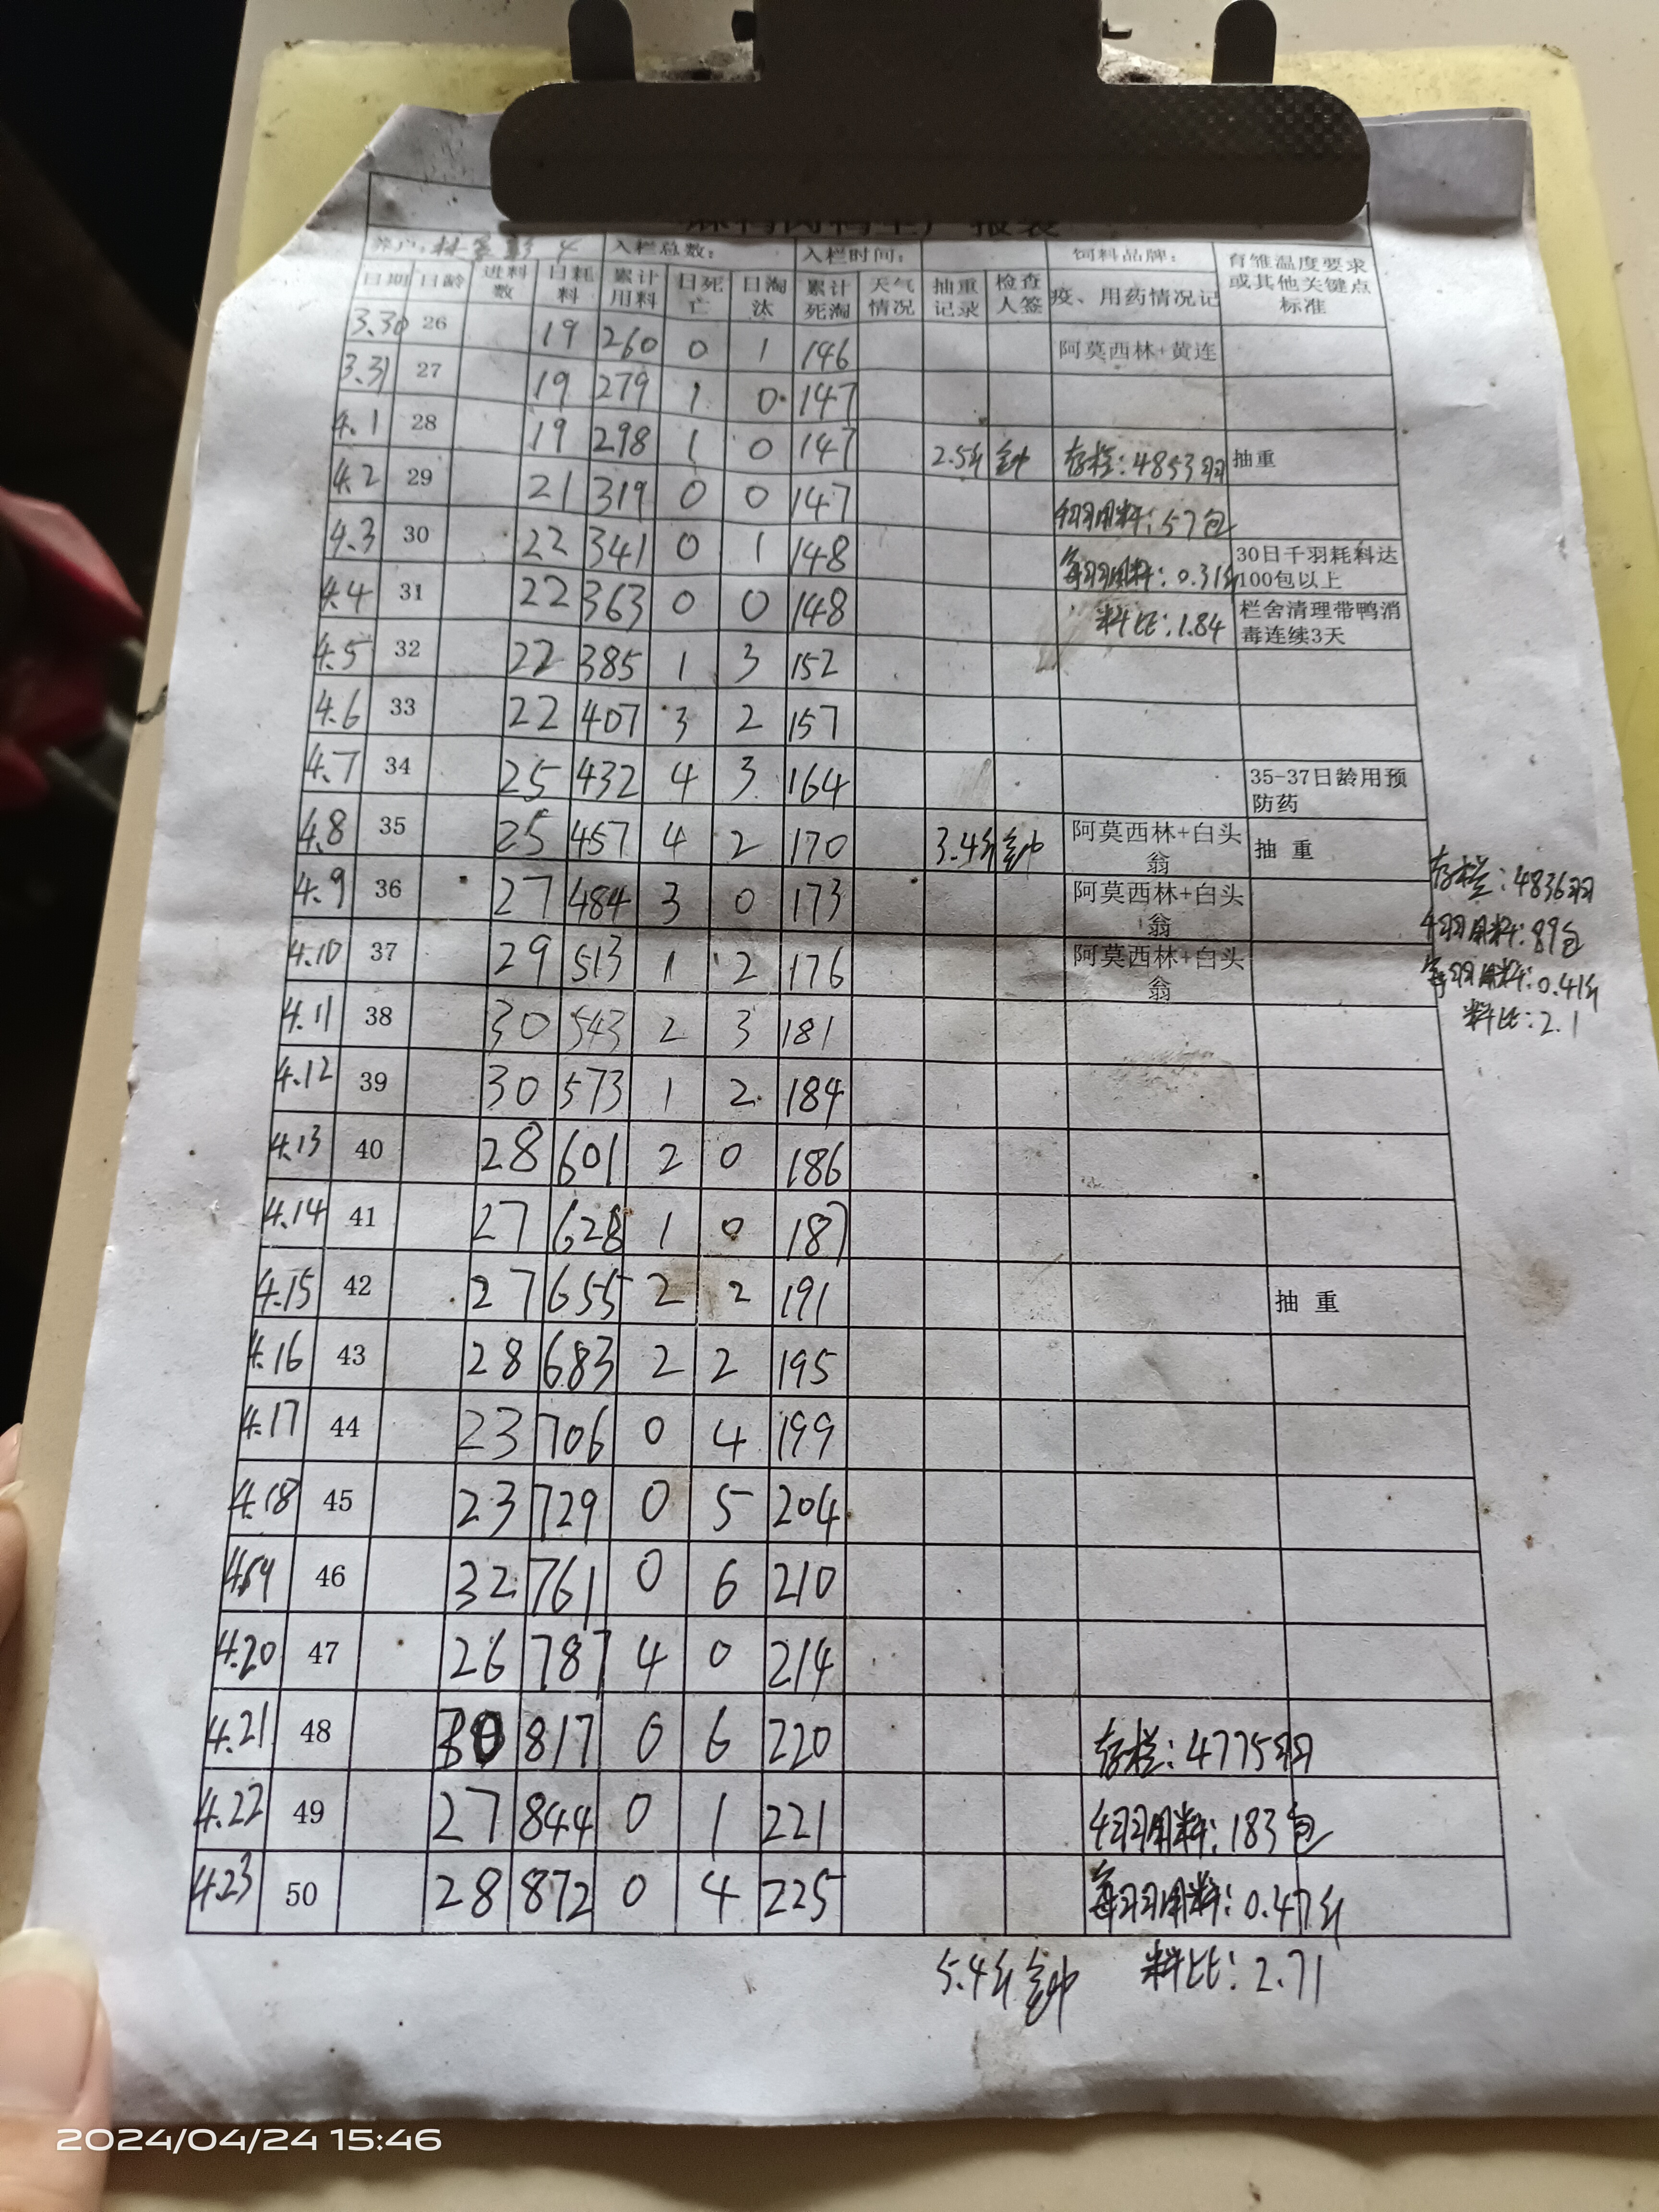 养户: 入栏总数: 入栏时间: 饲料品牌: 育雏温度要求或其他关键点标准
日期 日龄 进料数 日耗料 累计用料 日死亡 日淘汰 累计死淘 天气情况 抽重记录 检查人签 疫、用药情况记
3.30 26 19 260 0 1 146 阿莫西林+黄连
3.31 27 19 279 1 0 147
4.1 28 19 298 1 0 147 2.5斤 钟 存栏:4853羽 抽重
4.2 29 21 319 0 0 147 千羽用料:57包
4.3 30 22 341 0 1 148 每羽用料:0.31斤 30日千羽耗料达100包以上
4.4 31 22 363 0 0 148 料比:1.84 栏舍清理带鸭消毒连续3天
4.5 32 22 385 1 3 152
4.6 33 22 407 3 2 157
4.7 34 25 432 4 3 164 35-37日龄用预防药
4.8 35 25 457 4 2 170 3.4斤 钟 阿莫西林+白头翁 抽 重
存栏:4836羽
4.9 36 27 484 3 0 173 阿莫西林+白头翁
千羽用料:89包
4.10 37 29 513 1 2 176 阿莫西林+白头翁
每羽用料:0.41斤
料比:2.1
4.11 38 30 543 2 3 181
4.12 39 30 573 1 2 184
4.13 40 28 601 2 0 186
4.14 41 27 628 1 0 187
4.15 42 27 655 2 2 191 抽 重
4.16 43 28 683 2 2 195
4.17 44 23 706 0 4 199
4.18 45 23 729 0 5 204
4.19 46 32 761 0 6 210
4.20 47 26 787 4 0 214
4.21 48 30 817 0 6 220 存栏:4775羽
4.22 49 27 844 0 1 221 千羽用料:183包
4.23 50 28 872 0 4 225 每羽用料:0.47斤
5.4斤 钟 料比:2.71
2024/04/24 15:46